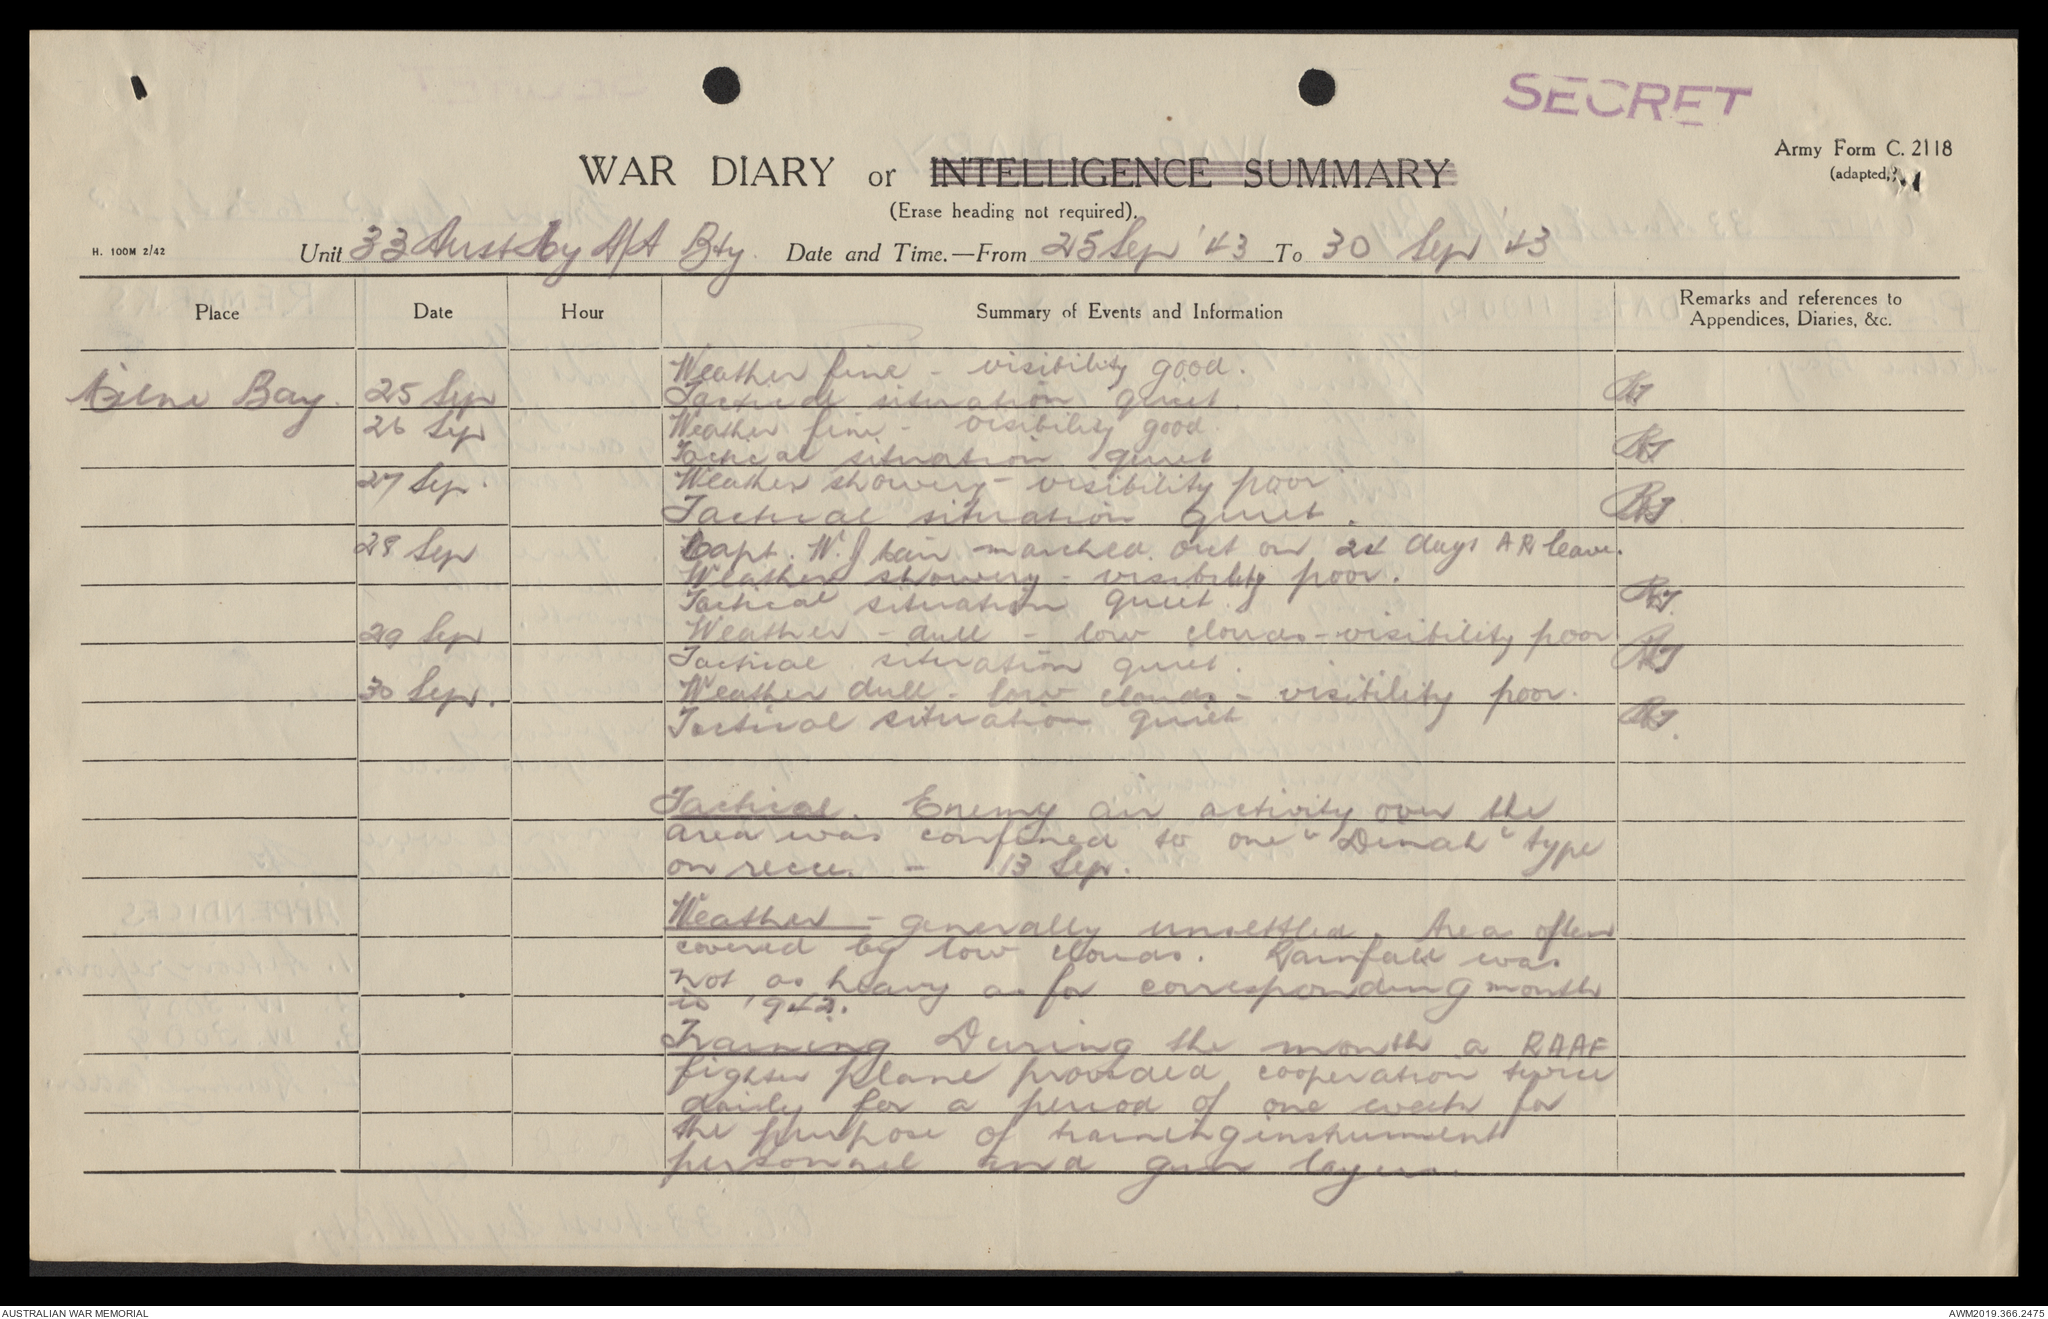 SECRET
Army Form C. 2118
(adapted.)
WAR DIARY or INTELLIGENCE SUMMARY
(Erase heading not required).
H. 100M 2/42
Unit 33 Aust Hy A/A Bty. Date and Time.—From 25 Sep '43 To 30 Sep '43
Place Date Hour Summary of Events and Information Remarks and references to
Appendices, Diaries, &c.
Weather fine - visibility good.
Milne Bay. 25 Sep Tactical situation quiet.
26 Sep Weather fine - visibility good.
Tactical situation quiet
27 Sep. Weather showery - visibility poor
Tactical situation quiet.
28 Sep Capt. W. J. marched out on 24 days AR leave.
Weather showery - visibility poor.
Tactical situation quiet.
29 Sep Weather - dull - low clouds - visibility poor
Tactical situation quiet.
30 Sep. Weather dull - low clouds - visibility poor.
Tactical situation quiet
Tactical. Enemy air activity over the
area was confined to one "Dinah" type
on recce. - 13 Sep.
Weather - generally unsettled. Area often
covered by low clouds. Rainfall was
not as heavy as for corresponding month
in 1942.
Training During the month a RAAF
fighter plane provided cooperation twice
daily for a period of one week for
the purpose of training instrument
personnel and gun layers.
AUSTRALIAN WAR MEMORIAL
AWM2019.366.2475